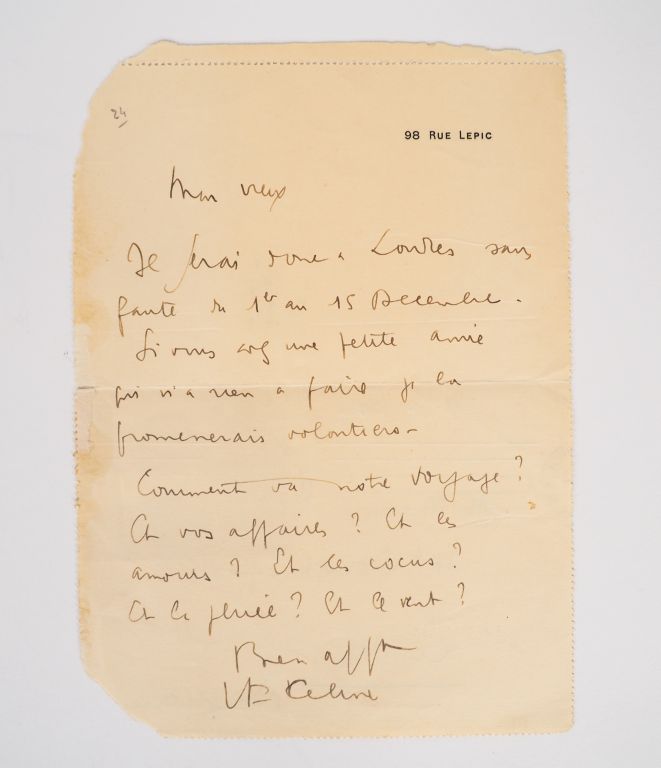 24
98 RUE LEPIC
Mon vieux
Je serai donc à Londres sans
faute du 1er au 15 Decembre.
Si vous avez une petite amie
qui n'a rien a faire je la
promenerais volontiers -
Comment va notre voyage ?
Et vos affaires ? Et les
amours ? Et les cocus ?
Et la pluie ? Et le vent ?
Bien afft
LF Celine